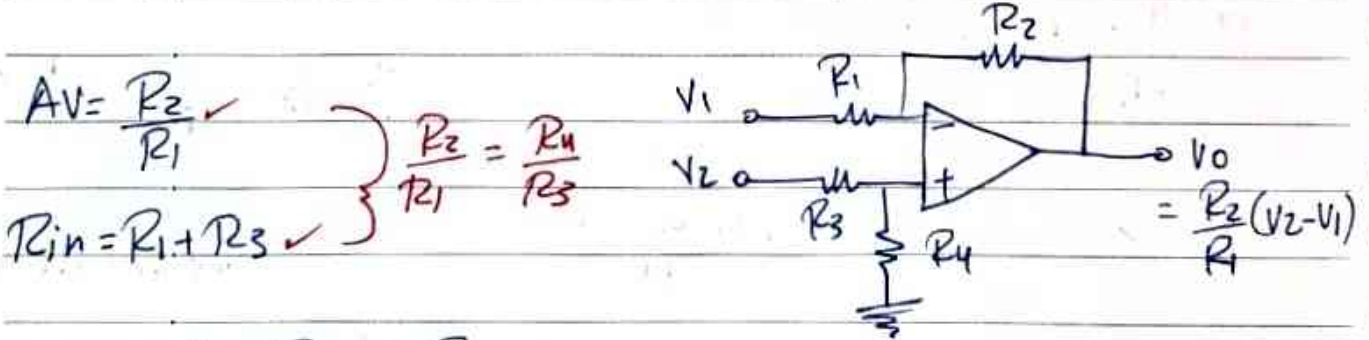 AV = R2/R1 ✓
Rin = R1 + R3 ✓
} R2/R1 = R4/R3
R2
R1
V1
-
V2
+
R3
R4
Vo
= R2/R1 (V2-V1)